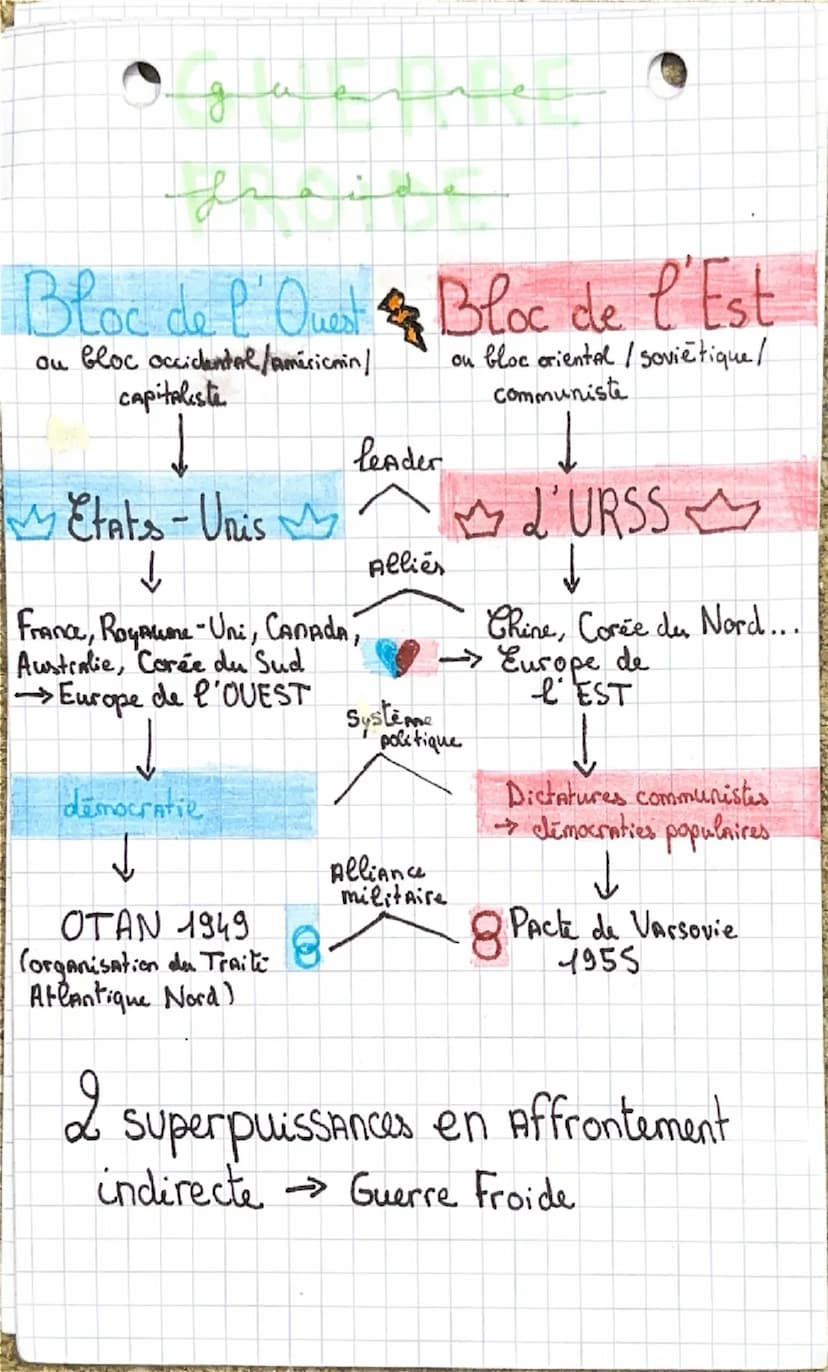 GUERRE
guerre
FROIDE
froide
Bloc de l'Ouest
ou bloc occidental/américain/
capitaliste
Bloc de l'Est
ou bloc oriental / soviétique/
communiste
leader
Etats-Unis
L'URSS
Alliés
France, Royaume-Uni, Canada,
Australie, Corée du Sud
→ Europe de l'OUEST
Chine, Corée du Nord...
→ Europe de
l'EST
Système
politique
démocratie
Dictatures communistes
→ démocraties populaires
Alliance
militaire
OTAN 1949
(organisation du Traité
Atlantique Nord)
Pacte de Varsovie
1955
2 superpuissances en Affrontement
indirecte → Guerre Froide